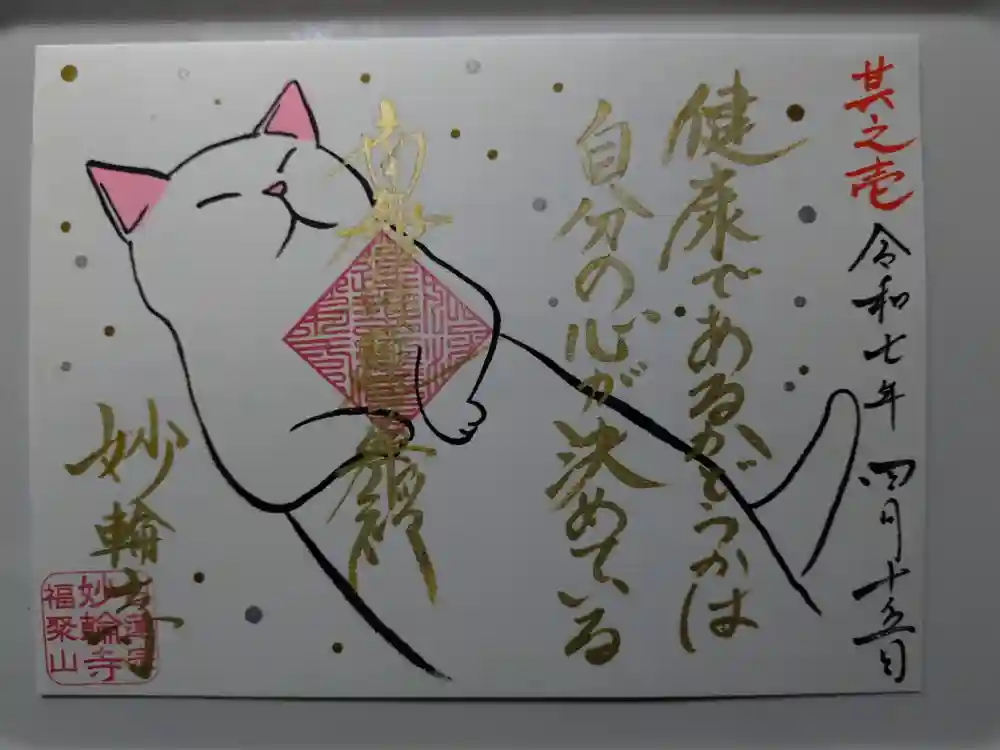 其之壱 令和七年 四月十五日
健康であるかどうかは
自分の心が決めている
南無
妙輪寺
妙輪寺
福聚山